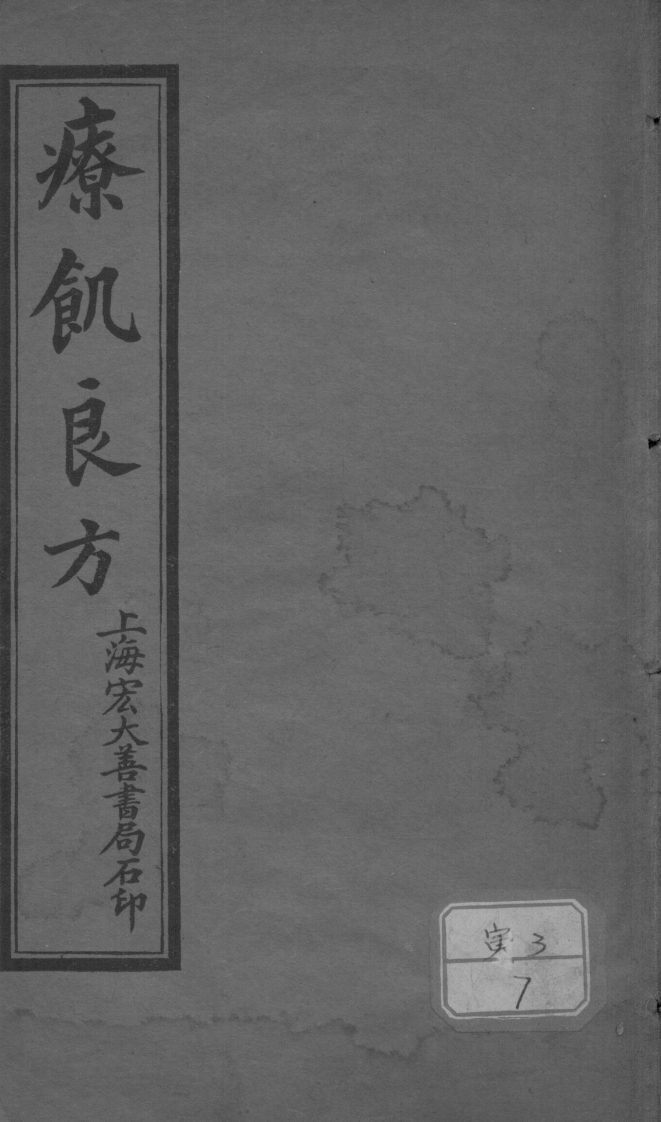 療飢良方
上海宏大善書局石印
実3
7